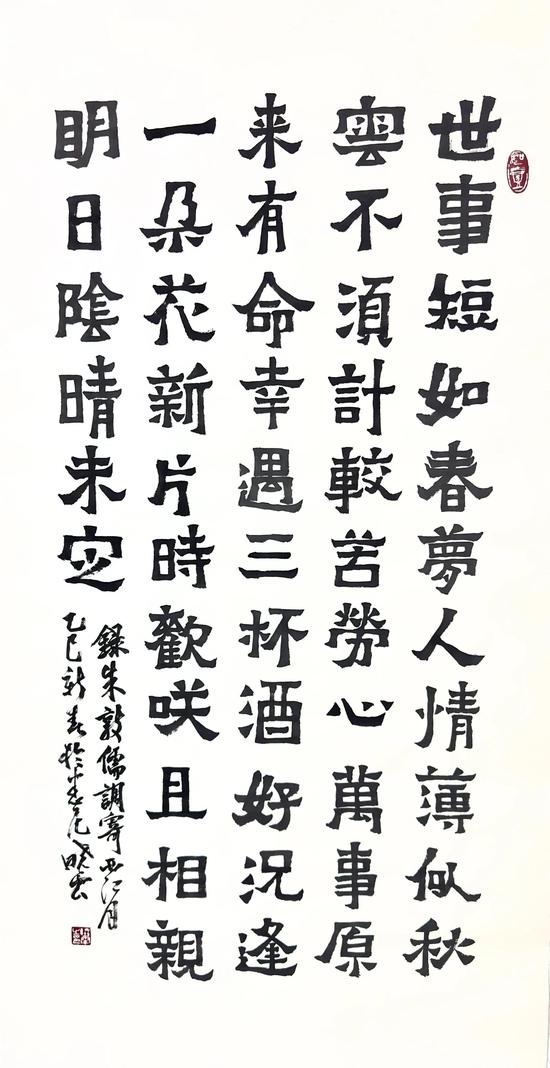 世事短如春夢人情薄似秋
雲不須計較苦勞心萬事原
来有命幸遇三杯酒好況逢
一朶花新片時歡咲且相親
明日陰晴未定
録朱敦儒調寄西江月
乙巳新春於